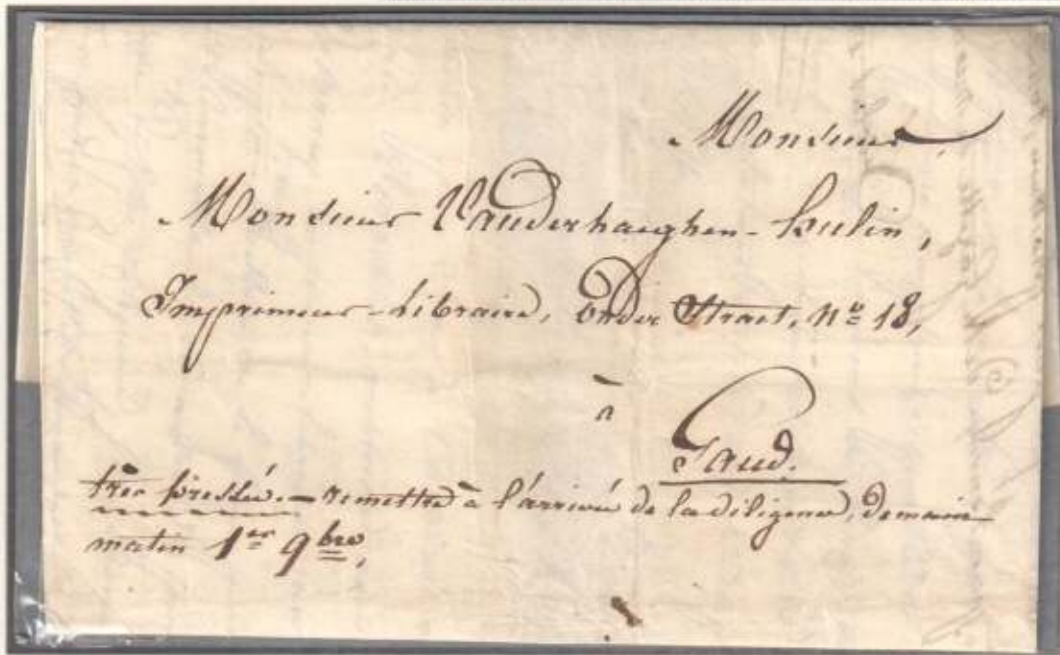 Monsieur,
Monsieur Vanderhaeghen-Hulin,
Imprimeur-Libraire, Onder Straet, Nº 18,
à
Gand.
très pressée. — remettre à l'arrivée de la diligence, demain
matin 1er 9bre,